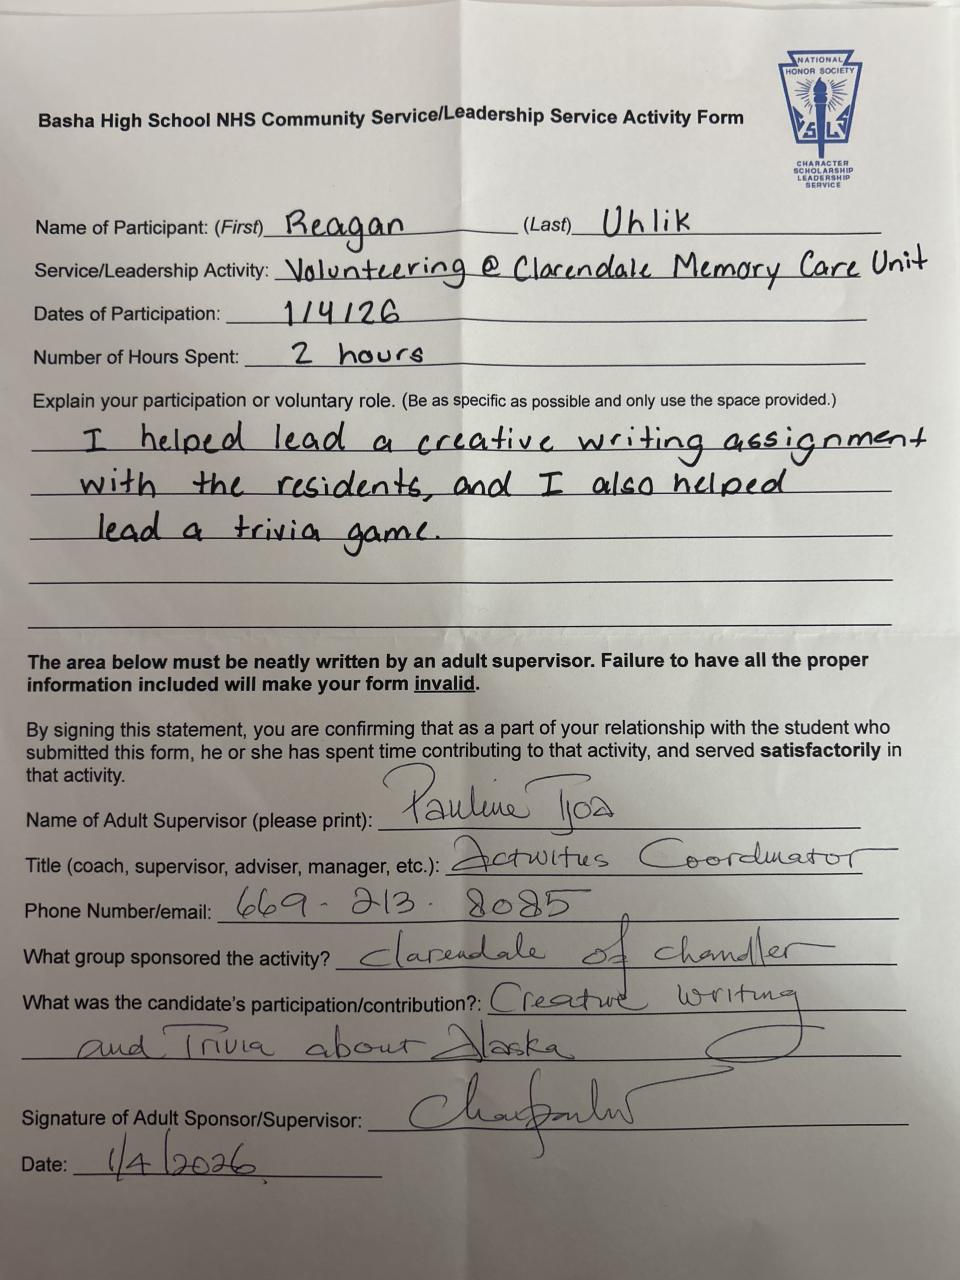 NATIONAL
HONOR SOCIETY
CSLS
CHARACTER
SCHOLARSHIP
LEADERSHIP
SERVICE
Basha High School NHS Community Service/Leadership Service Activity Form
Name of Participant: (First) Reagan (Last) Uhlik
Service/Leadership Activity: Volunteering @ Clarendale Memory Care Unit
Dates of Participation: 1/4/26
Number of Hours Spent: 2 hours
Explain your participation or voluntary role. (Be as specific as possible and only use the space provided.)
I helped lead a creative writing assignment
with the residents, and I also helped
lead a trivia game.
The area below must be neatly written by an adult supervisor. Failure to have all the proper
information included will make your form invalid.
By signing this statement, you are confirming that as a part of your relationship with the student who
submitted this form, he or she has spent time contributing to that activity, and served satisfactorily in
that activity.
Name of Adult Supervisor (please print): Pauline Tjoa
Title (coach, supervisor, adviser, manager, etc.): Activities Coordinator
Phone Number/email: 669-213-8085
What group sponsored the activity? Clarendale of chandler
What was the candidate's participation/contribution?: Creative Writing
and Trivia about Alaska
Signature of Adult Sponsor/Supervisor:
Date: 1/4/2026